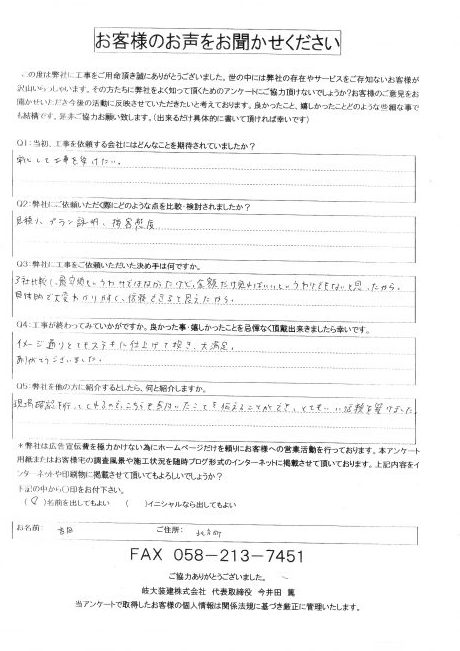 お客様のお声をお聞かせください
この度は弊社に工事をご用命頂き誠にありがとうございました。世の中には弊社の存在やサービスをご存知ないお客様が
沢山いらっしゃいます。その方たちに弊社をよく知って頂くためのアンケートにご協力頂けないでしょうか？お客様のご意見をお
聞かせいただき今後の活動に反映させていただきたいと考えております。良かったこと、嬉しかったことどのような些細な事で
も結構です。是非ご協力お願い致します。（出来るだけ具体的に書いて頂ければ幸いです）
Q1：当初、工事を依頼する会社にはどんなことを期待されていましたか？
安心して工事を受けたい。
Q2：弊社にご依頼いただく際にどのような点を比較・検討されましたか？
見積り、プラン説明、接客態度
Q3：弊社に工事をご依頼いただいた決め手は何ですか。
3社比較し、最安値というわけではなかったけど、金額だけ見ればいいというわけでもないと思ったから。
具体的で大変わかりやすく、信頼できると思えたから。
Q4：工事が終わってみていかがですか。良かった事・嬉しかったことを忌憚なく頂戴出来きましたら幸いです。
イメージ通りとてもステキに仕上げて頂き、大満足。
ありがとうございました。
Q5：弊社を他の方に紹介するとしたら、何と紹介しますか。
現場確認を行ってくれるので、こちらも気付いたことを伝えることができ、とてもいい信頼を築けました
＊弊社は広告宣伝費を極力かけない為にホームページだけを頼りにお客様への営業活動を行っております。本アンケート
用紙またはお客様宅の調査風景や施工状況を随時ブログ形式のインターネットに掲載させて頂いております。上記内容をイ
ンターネットや印刷物に掲載させて頂いてもよろしいでしょうか？
下記の中から○印をお付下さい。
（○）名前を出してもよい （ ）イニシャルなら出してもよい
お名前： ご住所：
FAX 058-213-7451
ご協力ありがとうございました。
岐大装建株式会社 代表取締役 今井田 篤
当アンケートで取得したお客様の個人情報は関係法規に基づき厳正に管理いたします。